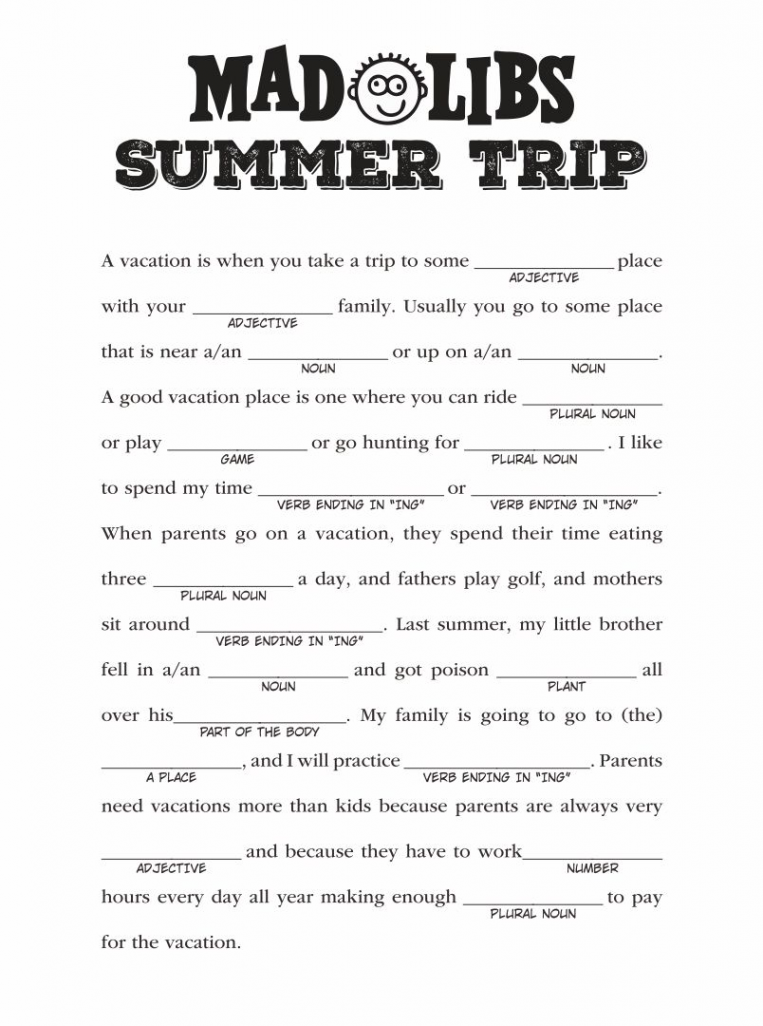 MAD LIBS
SUMMER TRIP
A vacation is when you take a trip to some ______________ place
ADJECTIVE
with your ______________ family. Usually you go to some place
ADJECTIVE
that is near a/an ______________ or up on a/an ______________.
NOUN NOUN
A good vacation place is one where you can ride ______________
PLURAL NOUN
or play ______________ or go hunting for ______________. I like
GAME PLURAL NOUN
to spend my time __________________ or __________________.
VERB ENDING IN "ING" VERB ENDING IN "ING"
When parents go on a vacation, they spend their time eating
three ______________ a day, and fathers play golf, and mothers
PLURAL NOUN
sit around __________________. Last summer, my little brother
VERB ENDING IN "ING"
fell in a/an ______________ and got poison ______________ all
NOUN PLANT
over his_________________. My family is going to go to (the)
PART OF THE BODY
______________, and I will practice __________________. Parents
A PLACE VERB ENDING IN "ING"
need vacations more than kids because parents are always very
______________ and because they have to work______________
ADJECTIVE NUMBER
hours every day all year making enough ______________ to pay
PLURAL NOUN
for the vacation.